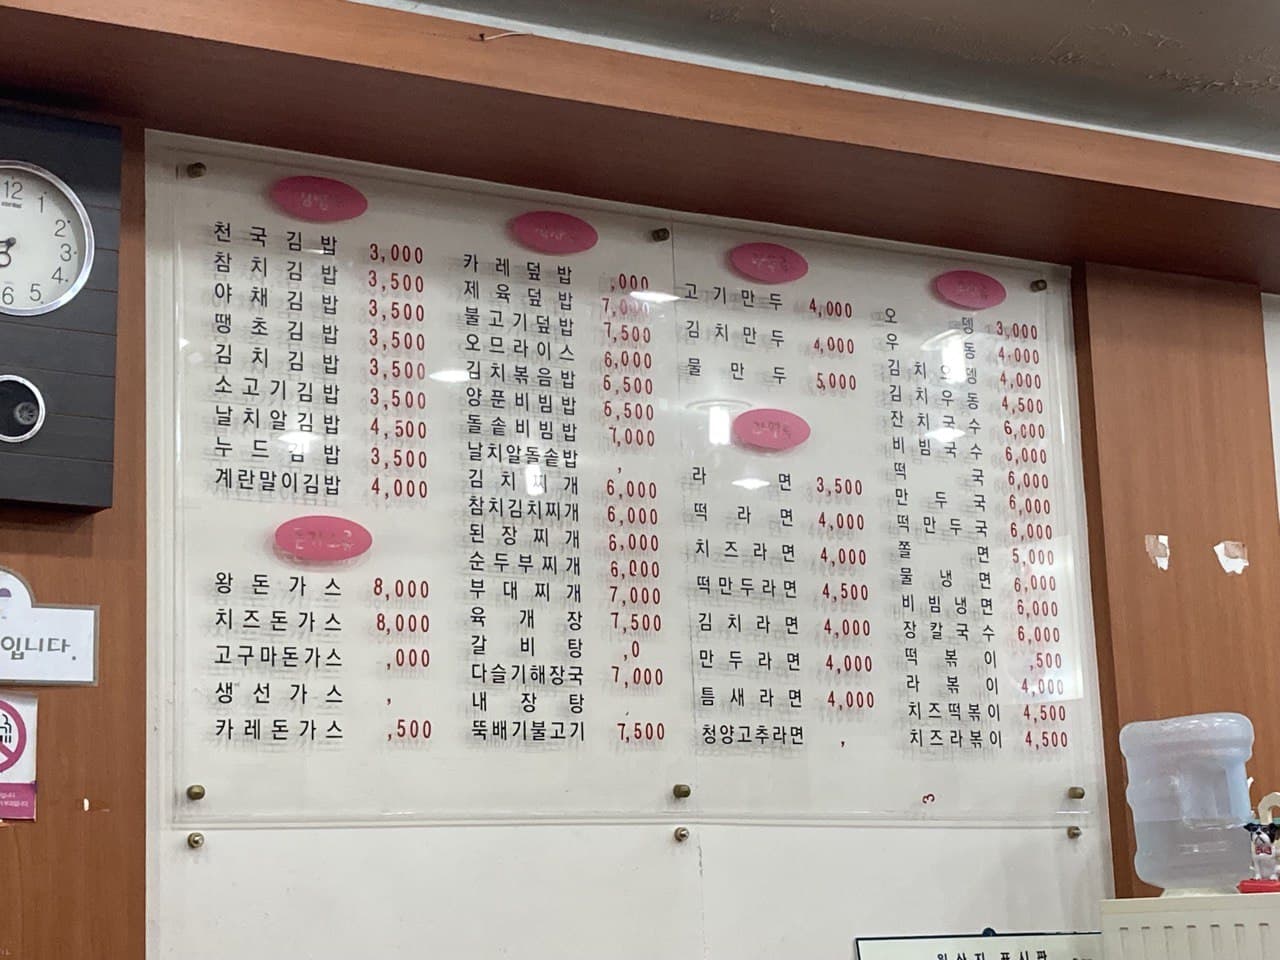 천국김밥 3,000
참치김밥 3,500
야채김밥 3,500
땡초김밥 3,500
김치김밥 3,500
소고기김밥 3,500
날치알김밥 4,500
누드김밥 3,500
계란말이김밥 4,000
돈가스류
왕돈가스 8,000
치즈돈가스 8,000
고구마돈가스 ,000
생선가스 ,
카레돈가스 ,500
카레덮밥 ,000
제육덮밥 7,000
불고기덮밥 7,500
오므라이스 6,000
김치볶음밥 6,500
양푼비빔밥 6,500
돌솥비빔밥 7,000
날치알돌솥밥 ,
김치찌개 6,000
참치김치찌개 6,000
된장찌개 6,000
순두부찌개 6,000
부대찌개 7,000
육개장 7,500
갈비탕 ,0
다슬기해장국 7,000
내장탕
뚝배기불고기 7,500
고기만두 4,000
김치만두 4,000
물만두 5,000
라면 3,500
떡라면 4,000
치즈라면 4,000
떡만두라면 4,500
김치라면 4,000
만두라면 4,000
틈새라면 4,000
청양고추라면 ,
오뎅 3,000
우동 4,000
김치오뎅 4,000
김치우동 4,500
잔치국수 6,000
비빔국수 6,000
떡국 6,000
만두국 6,000
떡만두국 6,000
쫄면 5,000
물냉면 6,000
비빔냉면 6,000
장칼국수 6,000
떡볶이 ,500
라볶이 4,000
치즈떡볶이 4,500
치즈라볶이 4,500
3
12
1
2
3
4
5
6
입니다.
원산지 표시판